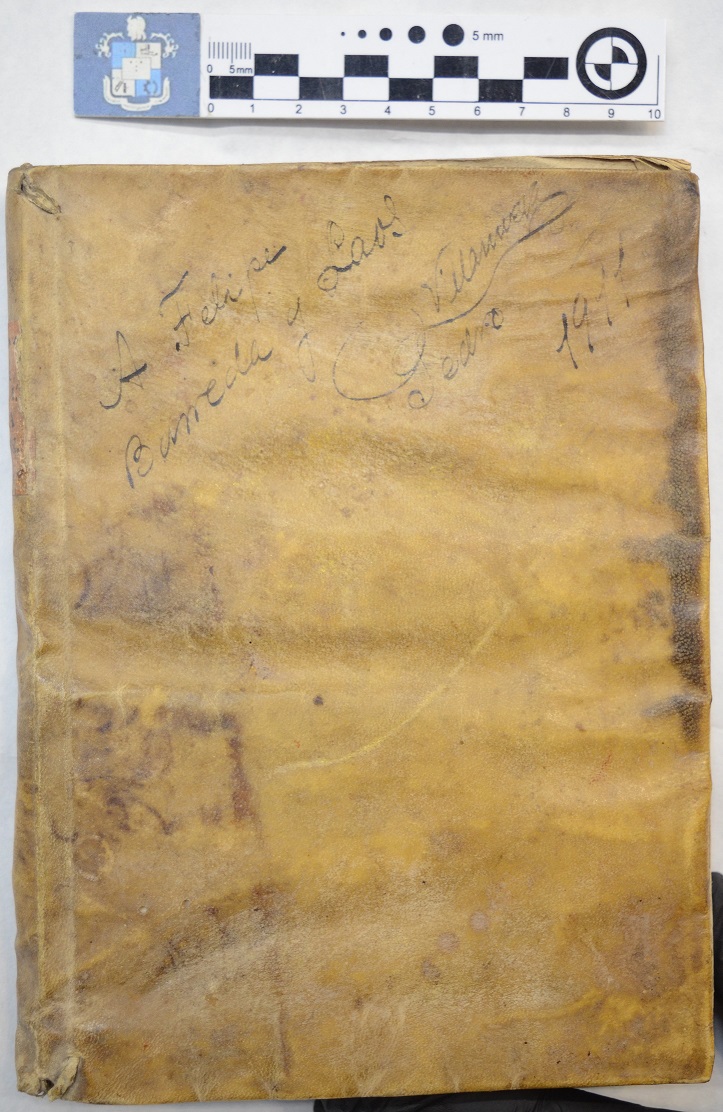 5 mm
0 5mm
0 1 2 3 4 5 6 7 8 9 10
A Felipe
Barreda y Laos
Pedro Villanueva
1911